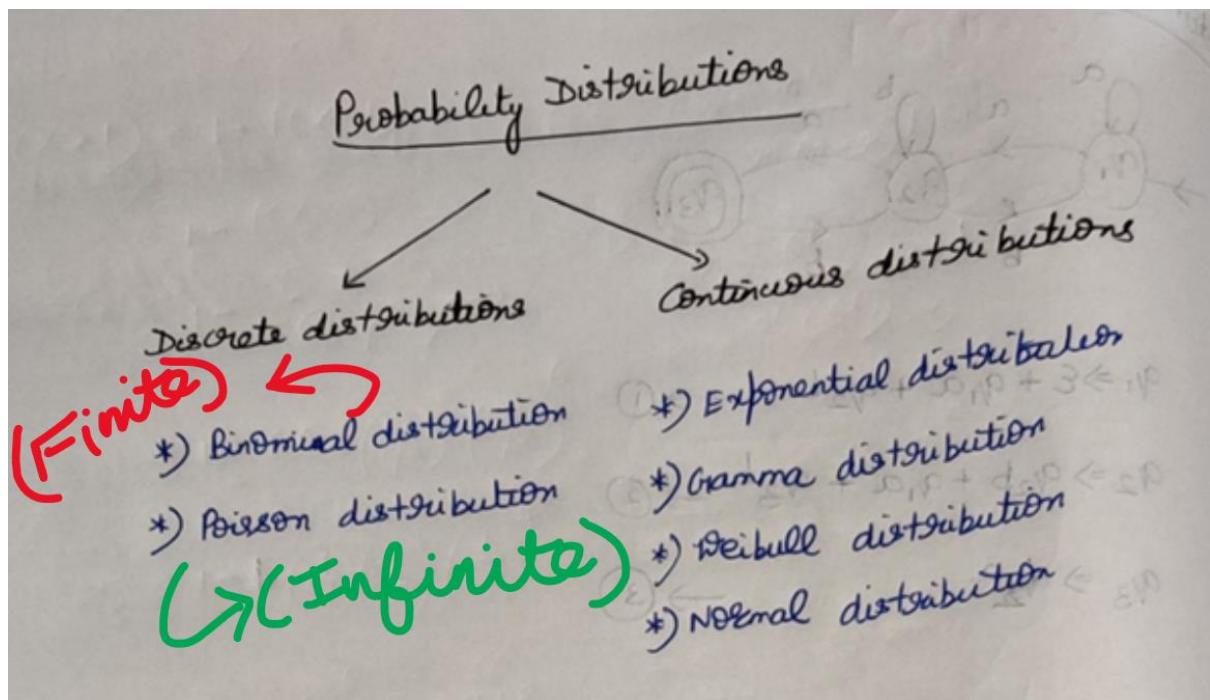 Probability Distributions
Discrete distributions
(Finite)
*) Binomial distribution
*) Poisson distribution
(Infinite)
Continuous distributions
*) Exponential distribution
*) Gamma distribution
*) Weibull distribution
*) Normal distribution